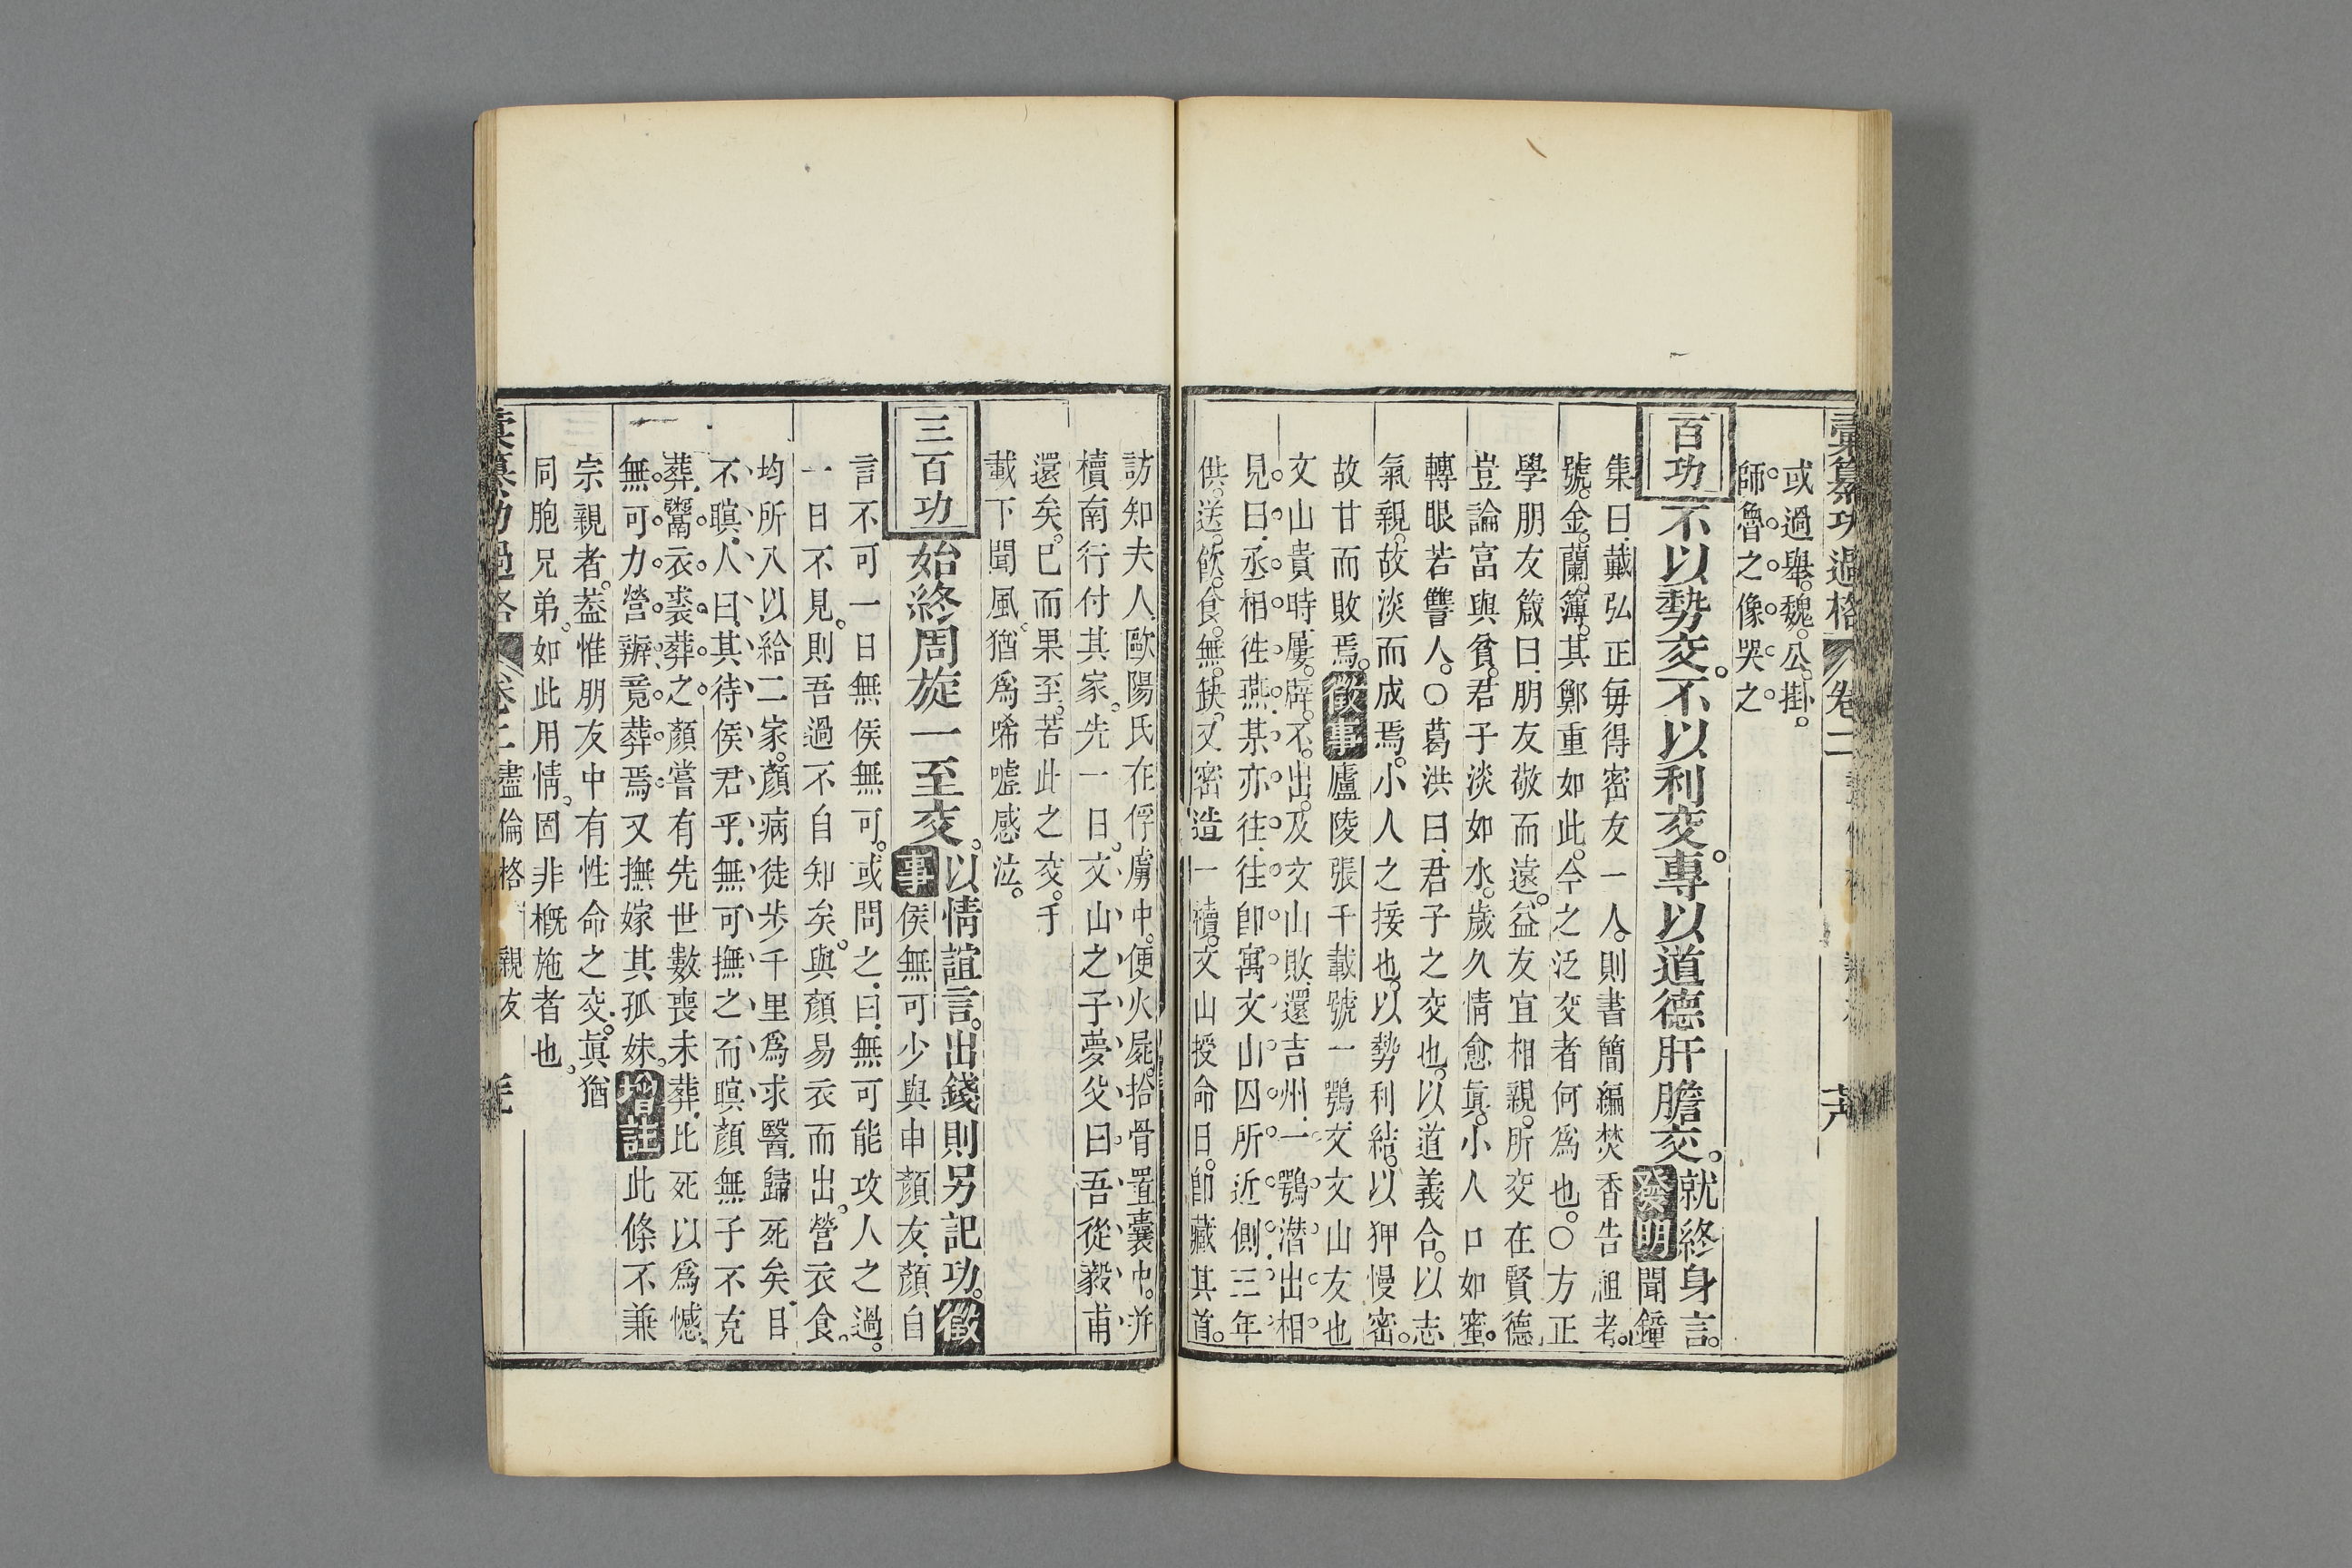 彙纂功過格 卷二
或過舉。魏公掛。
師魯之像哭之
百功 不以勢交。不以利交。專以道德肝膽交。就終身言。發明 聞鐘
集曰戴弘正每得密友一人。則書簡編焚香告祖考。
號。金。蘭。簿。其鄭重如此。今之泛交者何爲也。〇方正
學朋友箴曰。朋友敬而遠。益友宜相親。所交在賢德。
豈論富與貧。君子淡如水。歲久情愈眞。小人口如蜜。
轉眼若讐人。〇葛洪曰。君子之交也。以道義合。以志
氣親。故淡而成焉。小人之接也。以勢利結。以狎慢密。
故甘而敗焉。徵事 廬陵張千載號一鶚。交文山友也
文山貴時。屢。辟。不。出。及文山敗。還吉州。一鶚潛出相
見。曰。丞相徃燕。某亦往。往卽寓文山囚所近側。三年
供。送。飲。食。無。缺。又密造一櫝。文山授命日。卽藏其首。
訪知夫人歐陽氏在俘虜中。便火屍。拾骨置囊中。并
櫝南行付其家。先一日。文山之子夢父曰吾從毅甫
還矣。已而果至。若此之交。千
載下聞風。猶爲唏噓感泣。
三百功 始終周旋一至交。以情誼言。出錢則另記功。徵
事 侯無可少與申顏友。顏自
言不可一日無侯無可。或問之。曰。無可能攻人之過。
一日不見。則吾過不自知矣。與顏易衣而出。營衣食。
均所入以給二家。顏病徒步千里爲求醫。歸死矣。目
不瞑。人曰。其待侯君乎。無可撫之而瞑。顏無子不克
葬。鬻衣裘葬之。顏嘗有先世數喪未葬。比死以爲憾。
無可力營辦。竟葬焉。又撫嫁其孤妹。增註 此條不兼
宗親者。葢惟朋友中有性命之交。眞猶
同胞兄弟。如此用情。固非槪施者也。
彙纂功過格 卷二 盡倫格 親友